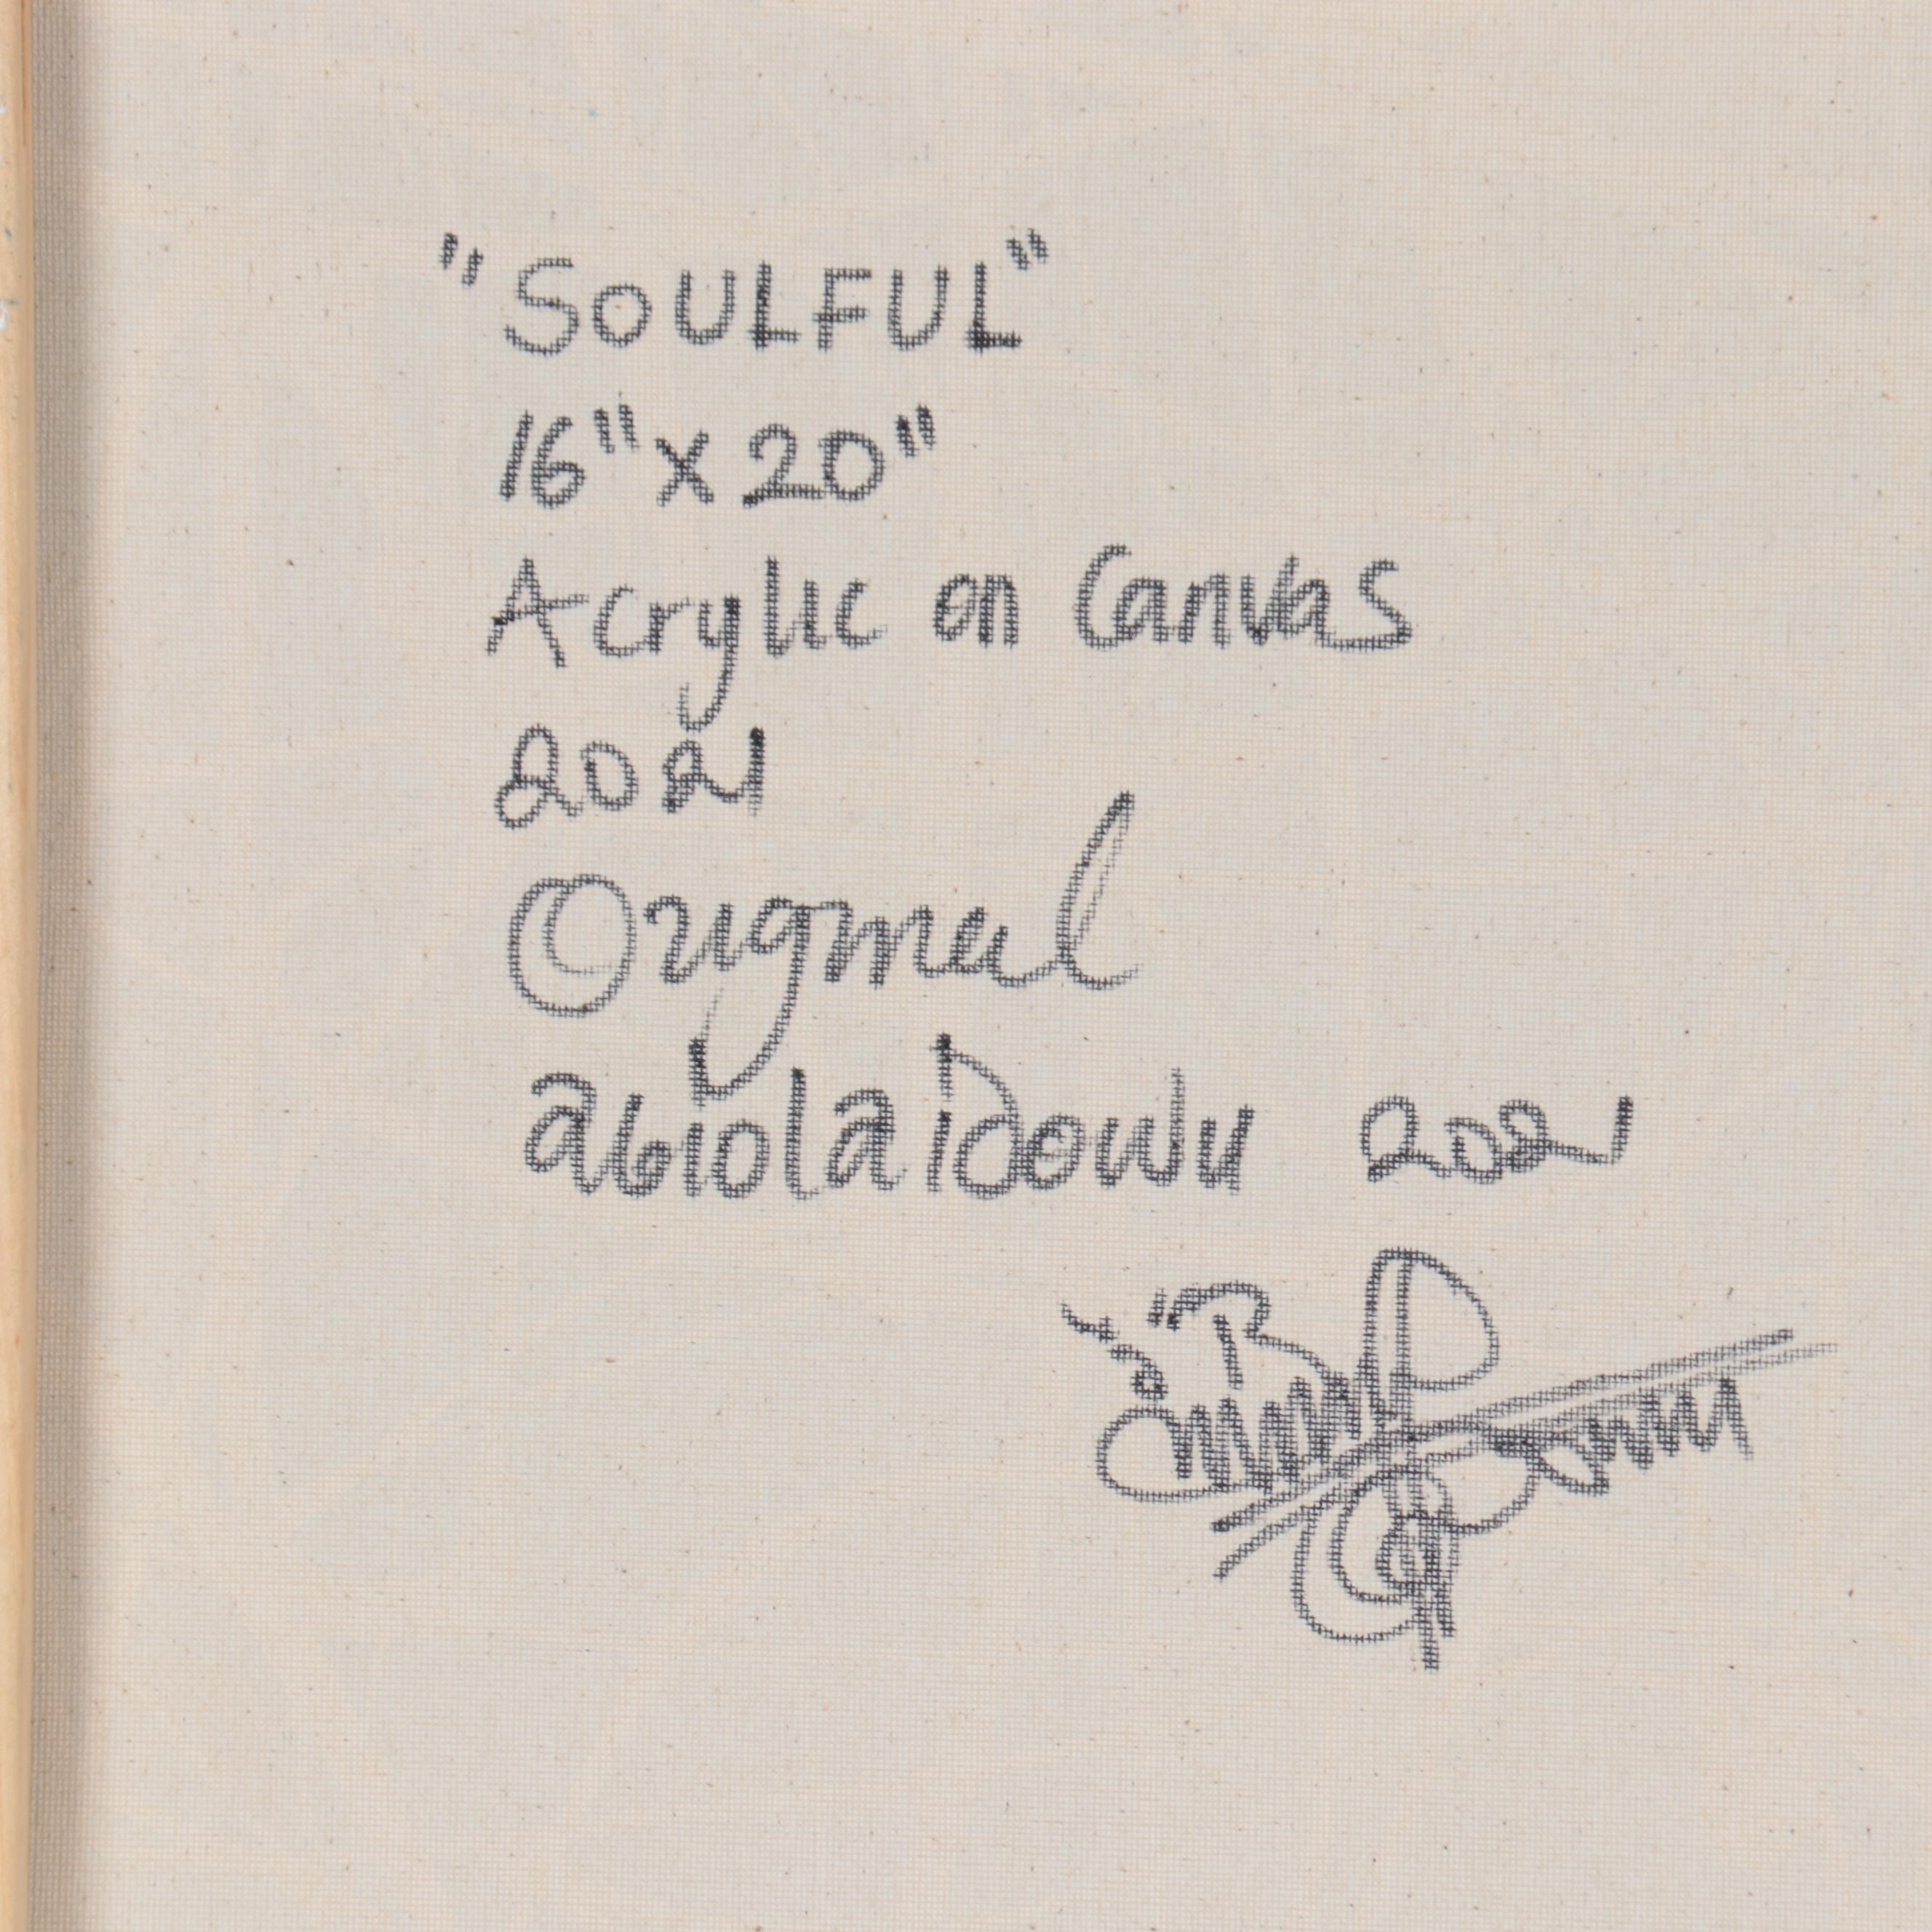 "SOULFUL"
16" x 20"
Acrylic on Canvas
2021
Original
abiola 2021